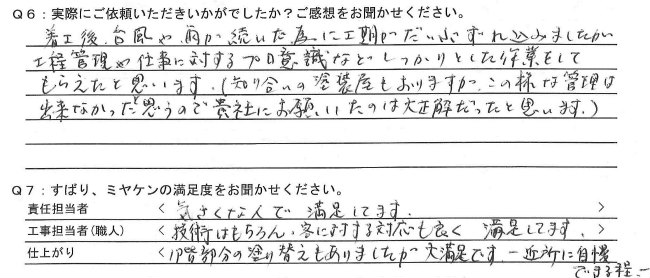 Q6：実際にご依頼いただきいかがでしたか？ご感想をお聞かせください。
着工後、台風や雨が続いた為に工期がだいぶずれ込みましたが
工程管理や仕事に対するプロ意識などしっかりとした作業をして
もらえたと思います。(知り合いの塗装屋もおりますが、この様な管理は
出来なかったと思うので貴社にお願いしたのは大正解だったと思います。)
Q7：ずばり、ミヤケンの満足度をお聞かせください。
責任担当者 〈 気さくな人で 満足してます。 〉
工事担当者(職人) 〈 技術はもちろん、客に対する対応も良く 満足してます。 〉
仕上がり 〈 部分の塗り替えもありましたが 大満足です ー近所に自慢
できる程ー